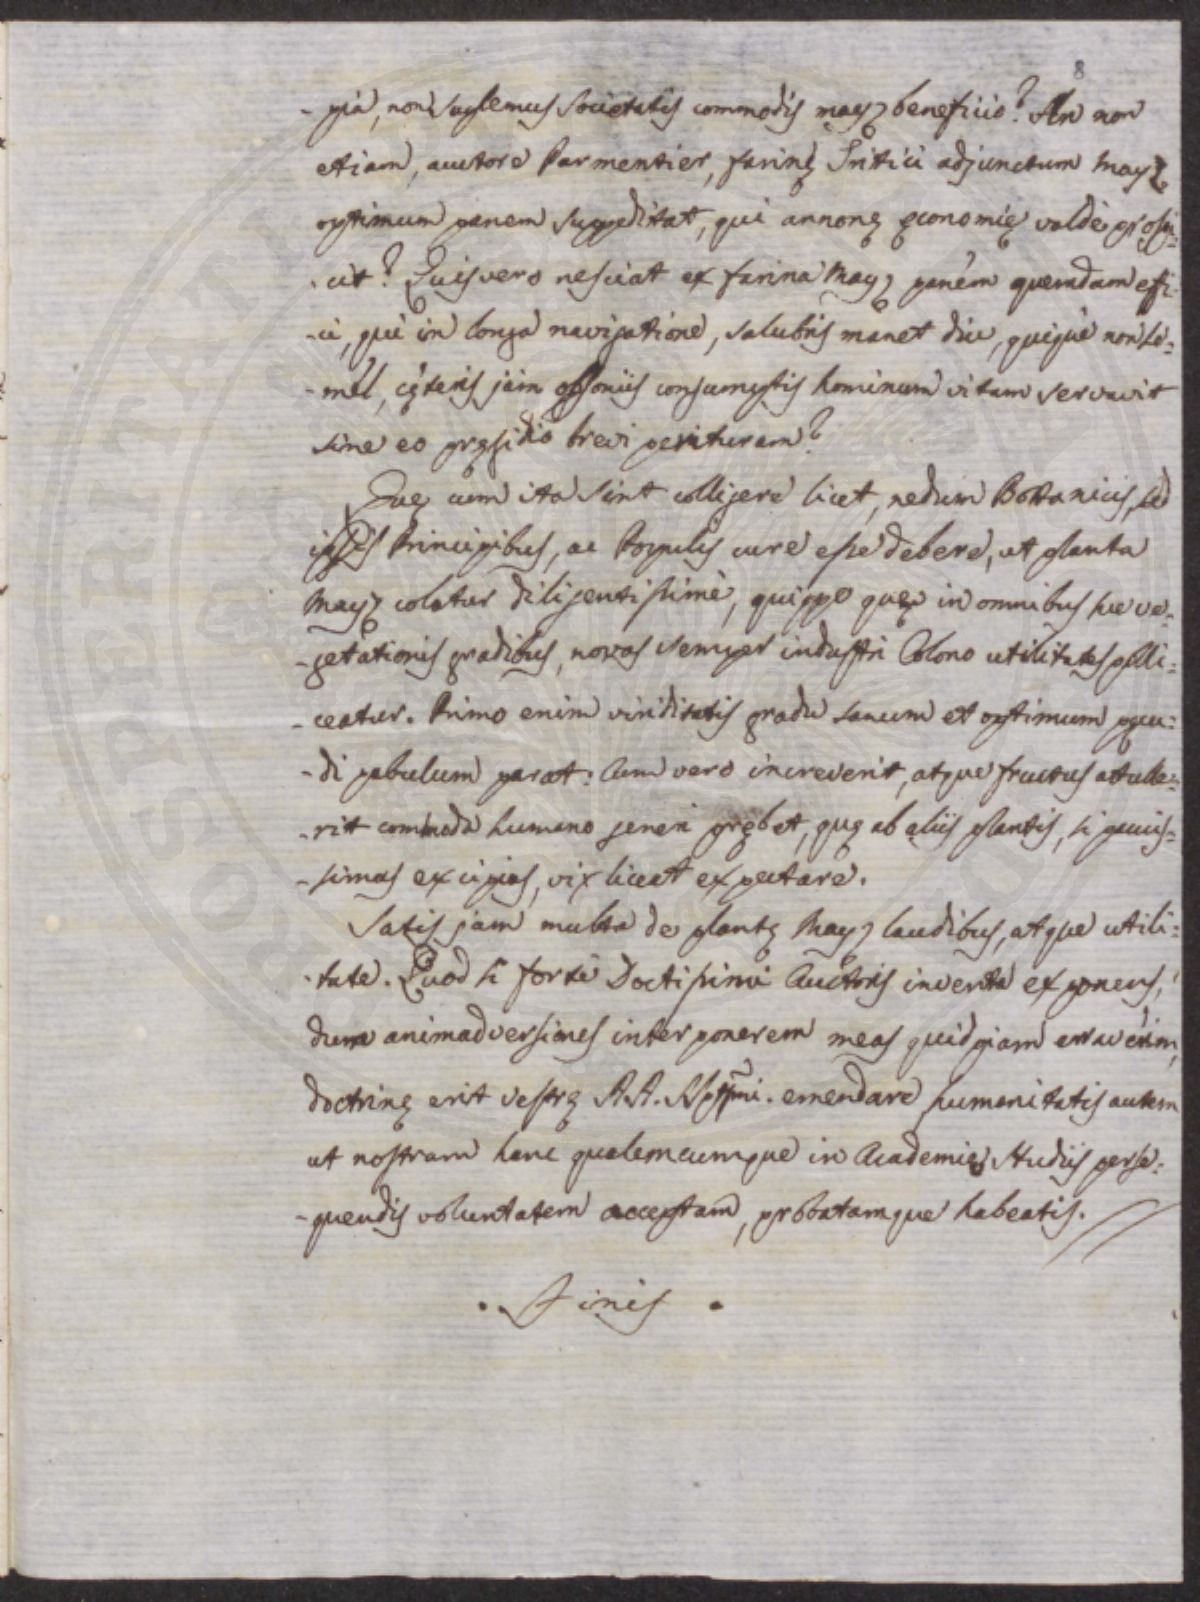 8
-pia, non suplemus societatis commodis mayz beneficio? An non
etiam, auctore Parmentier, farinę Tritici adjunctum mayz
optimum panem suppeditat, qui annonę ęconomię valdè prospi-
-cit? Quis vero nesciat ex farina Mayz panem quemdam effi-
-ci, qui in longa navigatione, salubris manet diu, quique non se-
-mel, cęteris jam opsoniis consumptis hominum vitam servavit
sine eo pręsidio brevi perituram?
Quę cum ita sint colligere licet, nedum Bottanicis, sed
ipsis Principibus, ac Populis curę esse debere, ut planta
Mayz colatur diligentissimè, quippe quę in omnibus suę ve-
-getationis gradibus, novas semper industri Colono utilitates polli-
-ceatur. Primo enim viriditatis gradu sanum et optimum pecu-
-di pabulum parat: Cum vero increverit, atque fructus attule-
-rit commoda humano generi prębet, quę ab aliis plantis, si paucis-
-simas excipias, vix liceat expectare.
Satis jam multa de plantę Mayz laudibus, atque utili-
-tate. Quod si fortè Doctissimi Auctoris inventa exponens,
dum animadversiones interponerem meas quidpiam erraverim,
doctrinę erit vestrę A.A. emendare humanitatis autem
ut nostram hanc qualemcumque in Academię studiis perse-
-quendis voluntatem acceptam, probatamque habeatis.
. Finis .
PROSPERITATI